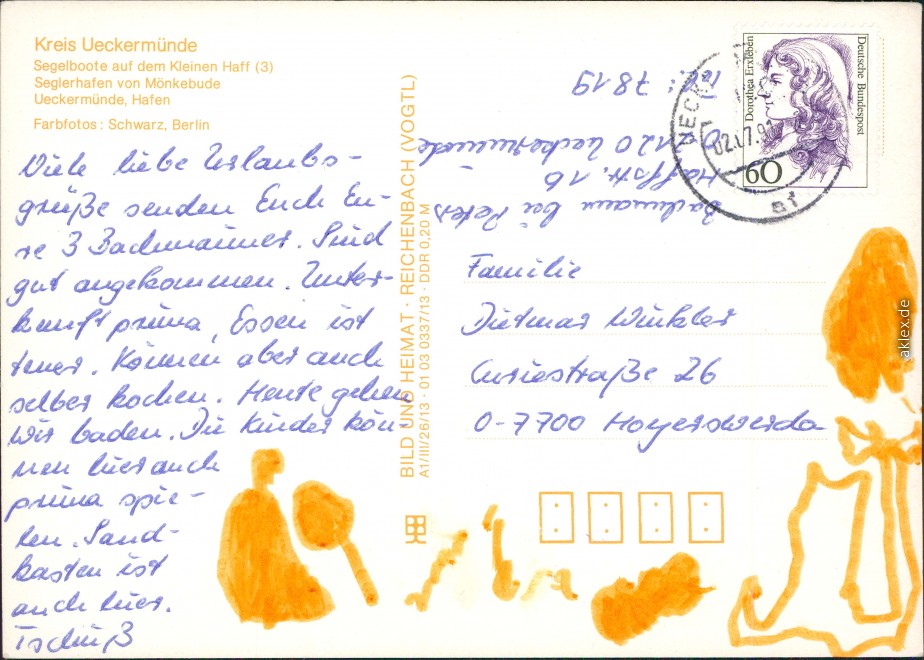 Kreis Ueckermünde
Segelboote auf dem Kleinen Haff (3)
Seglerhafen von Mönkebude
Ueckermünde, Hafen
Farbfotos: Schwarz, Berlin
Viele liebe Urlaubs-
grüße senden Euch Eu-
re 3 Bachmänner. Sind
gut angekommen. Unter-
kunft prima, Essen ist
teuer. Können aber auch
selber kochen. Heute gehen
wir baden. Die Kinder kön-
nen hier auch
prima spie-
len. Sand-
kasten ist
auch hier.
Tschüß
BILD UND HEIMAT · REICHENBACH (VOGTL)
A1/III/26/13 · 01 03 0337/13 · DDR 0,20 M
Bachmann bei Peters
Haffstr. 16
2120 Ueckermünde
Tel.: 7819
Dorothea Erxleben
Deutsche Bundespost
60
UECK
02.07.9
Familie
Dietmar Winkler
Curiestraße 26
O-7700 Hoyerswerda
aklex.de